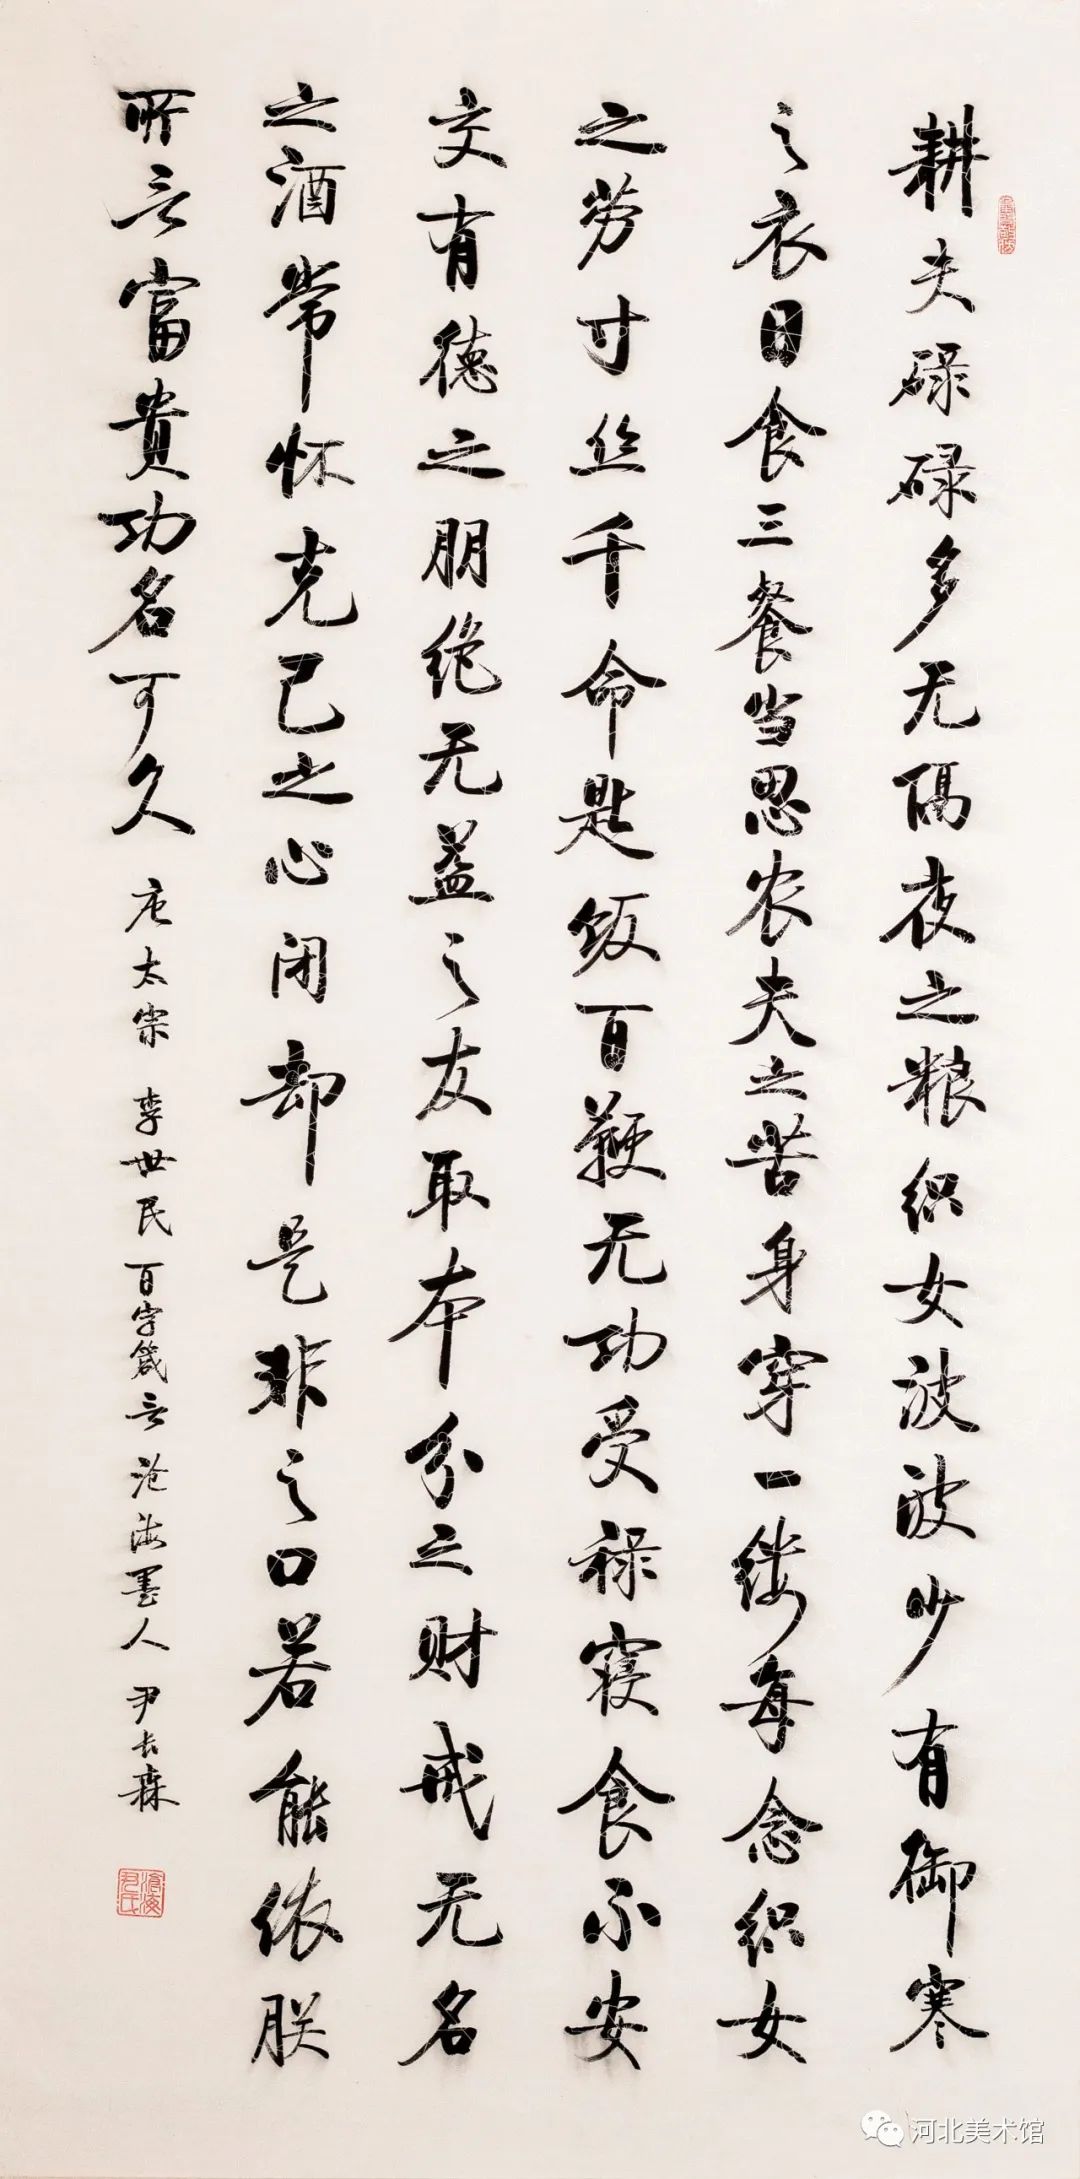 耕夫碌碌多无隔夜之粮织女波波少有御寒
之衣日食三餐当思农夫之苦身穿一缕每念织女
之劳寸丝千命匙饭百鞭无功受禄寝食不安
交有德之朋绝无益之友取本分之财戒无名
之酒常怀克己之心闭却是非之口若能依朕
所言富貴功名可久 唐太宗 李世民 百字箴言 沧海墨人 尹长森
滄海尹氏
河北美术馆